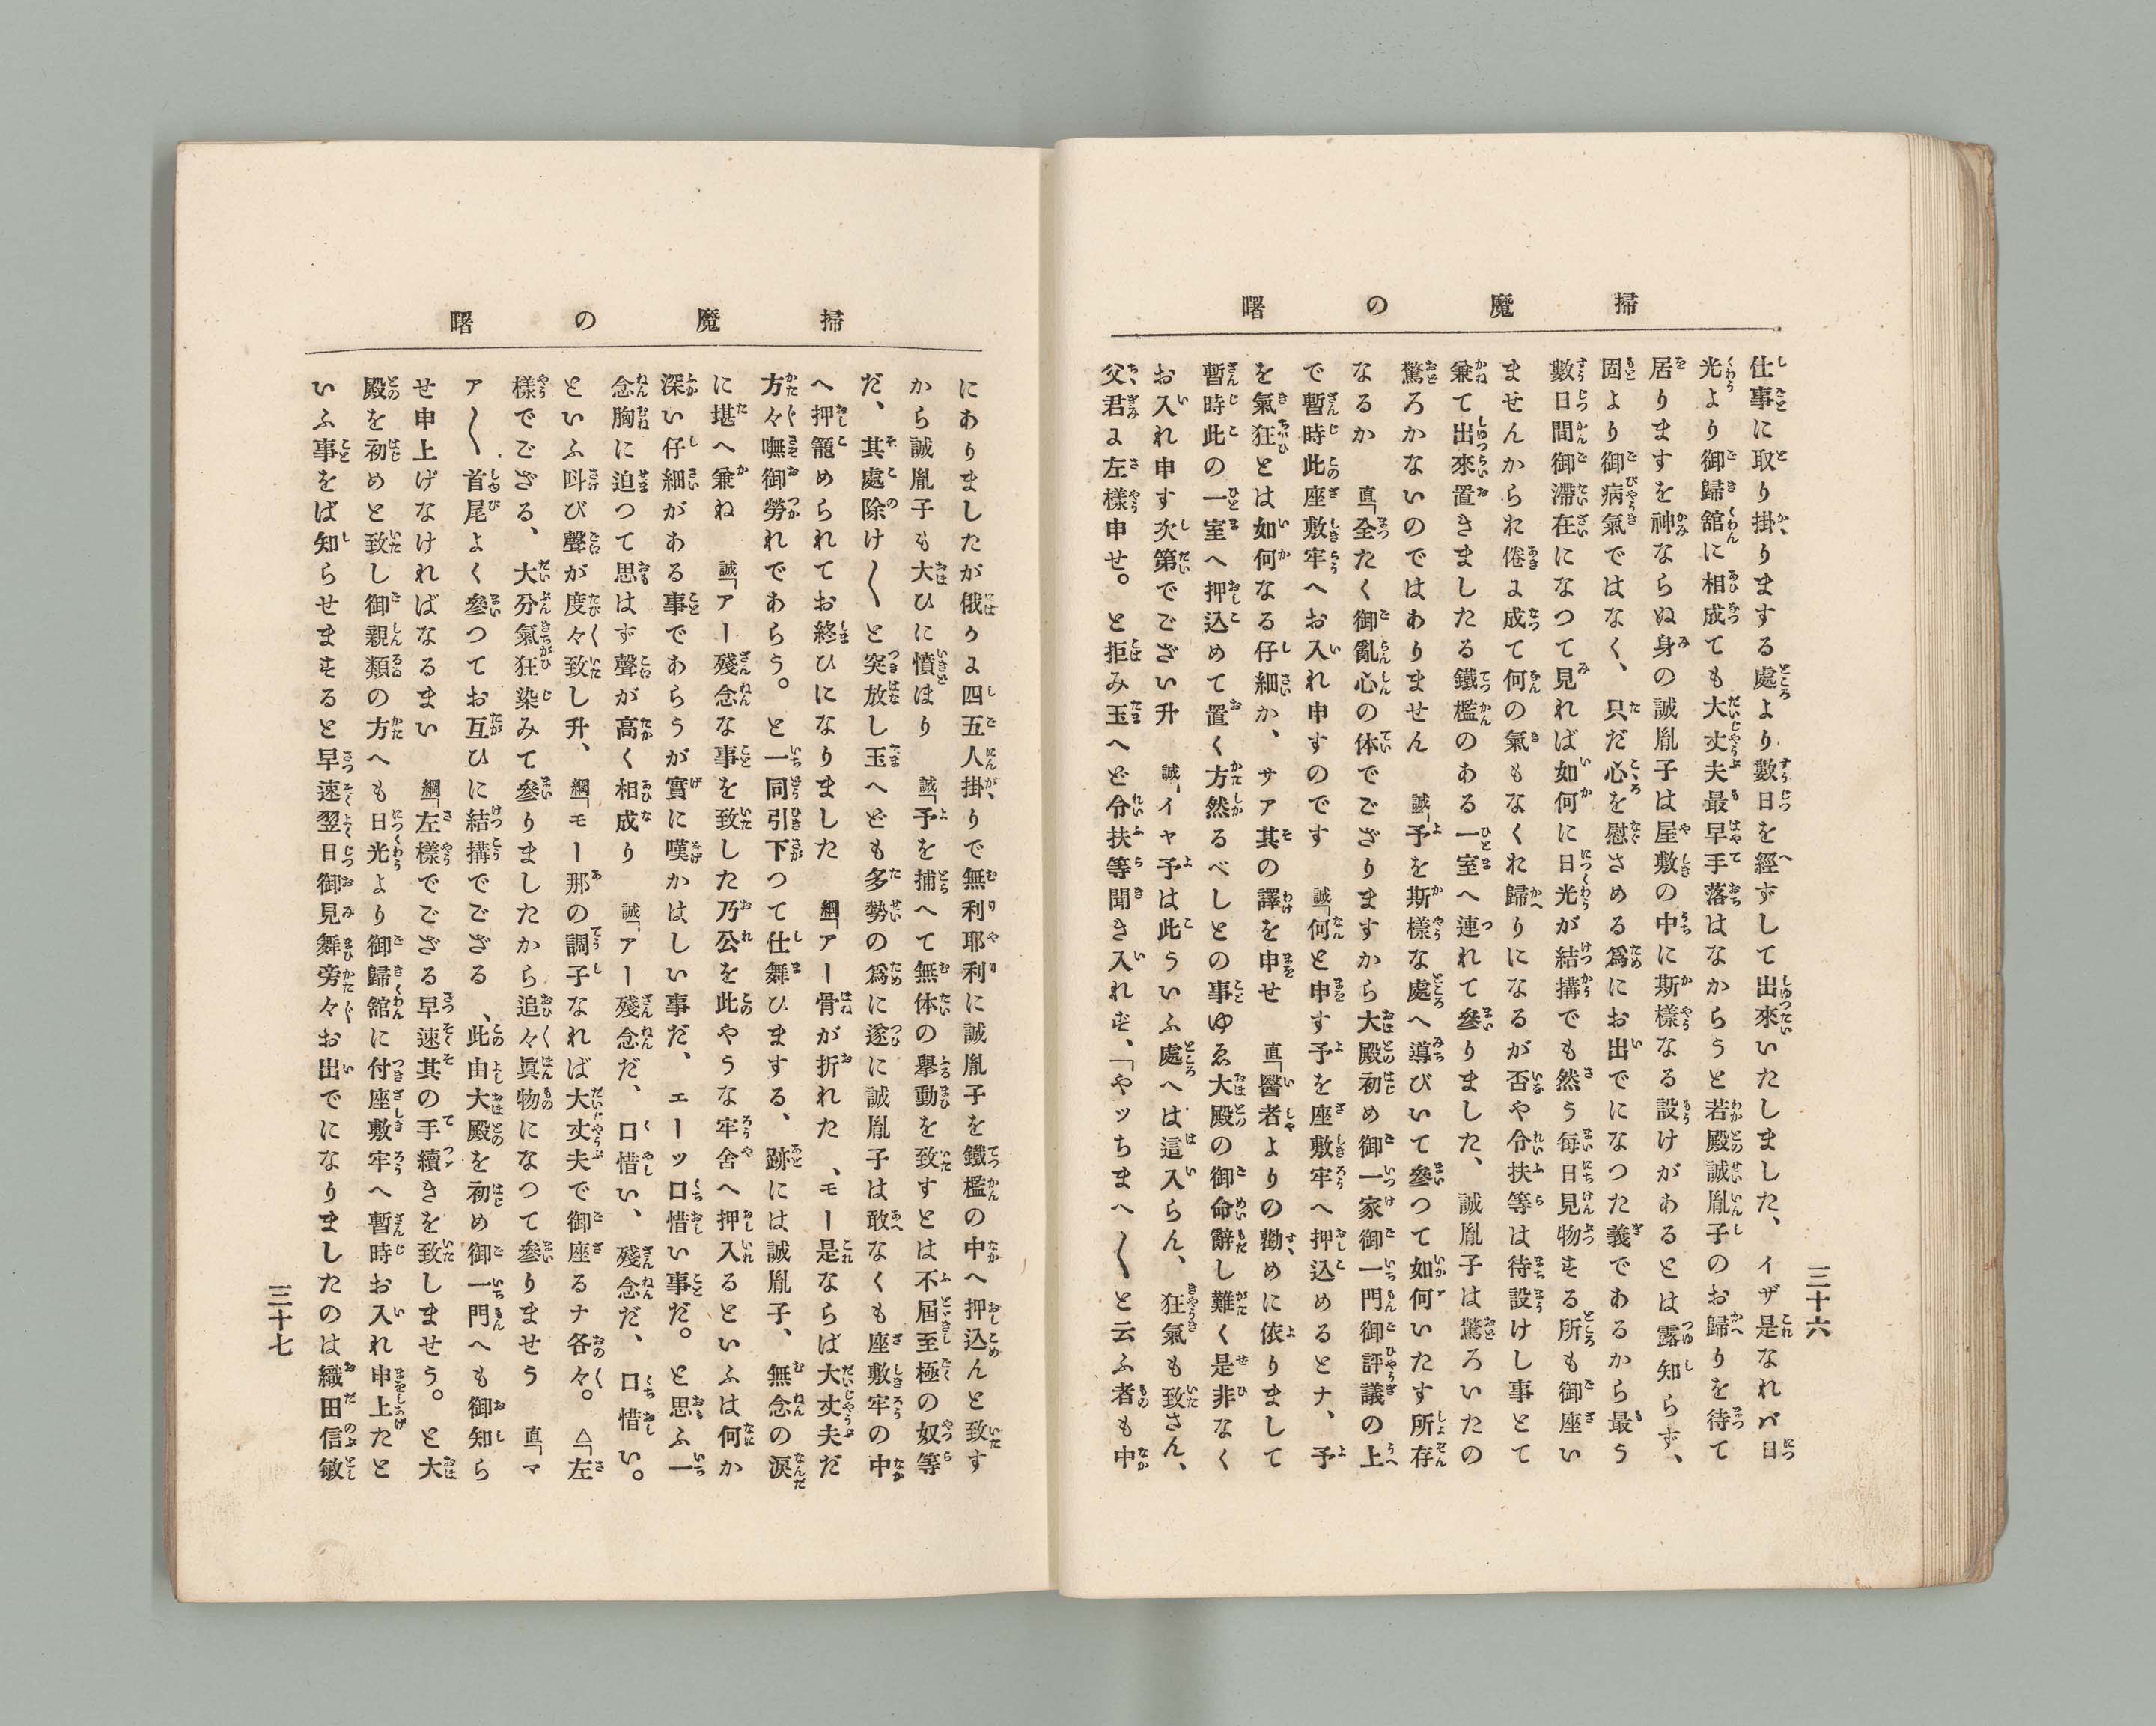 掃魔の曙
三十六
仕事に取り掛ゝりまする處より數日を經ずして出來いたしました、イザ是なれバ日
光より御歸舘に相成ても大丈夫最早手落はなからうと若殿誠胤子のお歸りを待て
居りますを神ならぬ身の誠胤子は屋敷の中に斯樣なる設けがあるとは露知らず、
固より御病氣ではなく、只だ心を慰さめる爲にお出でになつた義であるから最う
數日間御滯在になつて見れば如何に日光が結搆でも然う毎日見物する所も御座い
ませんかられ倦よ成て何の氣もなくれ歸りになるが否や令扶等は待設けし事とて
兼て出來置きましたる鐵檻のある一室へ連れて參りました、誠胤子は驚ろいたの
驚ろかないのではありません 誠「予を斯樣な處へ導びいて參つて如何いたす所存
なるか 直「全たく御亂心の体でござりますから大殿初め御一家御一門御評議の上
で暫時此座敷牢へお入れ申すのです 誠「何と申す予を座敷牢へ押込めるとナ、予
を氣狂とは如何なる仔細か、サア其の譯を申せ 直「醫者よりの勸めに依りまして
暫時此の一室へ押込めて置く方然るべしとの事ゆゑ大殿の御命辭し難く是非なく
お入れ申す次第でござい升 誠「イヤ予は此ういふ處へは這入らん、狂氣も致さん、
父君よ左樣申せ。と拒み玉へど令扶等聞き入れず、「やッちまへ〱と云ふ者も中
掃魔の曙
にありましたが俄りよ四五人掛りで無利耶利に誠胤子を鐵檻の中へ押込んと致す
から誠胤子も大ひに憤はり 誠「予を捕へて無体の擧動を致すとは不屆至極の奴等
だ、其處除け〱と突放し玉へども多勢の爲に遂に誠胤子は敢なくも座敷牢の中
へ押籠められてお終ひになりました 綱「アー骨が折れた、モー是ならば大丈夫だ
方々嘸御勞れであらう。と一同引下つて仕舞ひまする、跡には誠胤子、無念の淚
に堪へ兼ね 誠「アー殘念な事を致した乃公を此やうな牢舍へ押入るといふは何か
深い仔細がある事であらうが實に嘆かはしい事だ、エーッ口惜い事だ。と思ふ一
念胸に迫つて思はず聲が高く相成り 誠「アー殘念だ、口惜い、殘念だ、口惜い。
といふ叫び聲が度々致し升、 綱「モー那の調子なれば大丈夫で御座るナ各々。 △「左
樣でござる、大分氣狂染みて參りましたから追々眞物になつて參りませう 直「マ
ア〱首尾よく參つてお互ひに結搆でござる、此由大殿を初め御一門へも御知ら
せ申上げなければなるまい 綱「左樣でござる早速其の手續きを致しませう。と大
殿を初めと致し御親類の方へも日光より御歸舘に付座敷牢へ暫時お入れ申上たと
いふ事をば知らせまするると早速翌日御見舞旁々お出でになりましたのは織田信敏
三十七